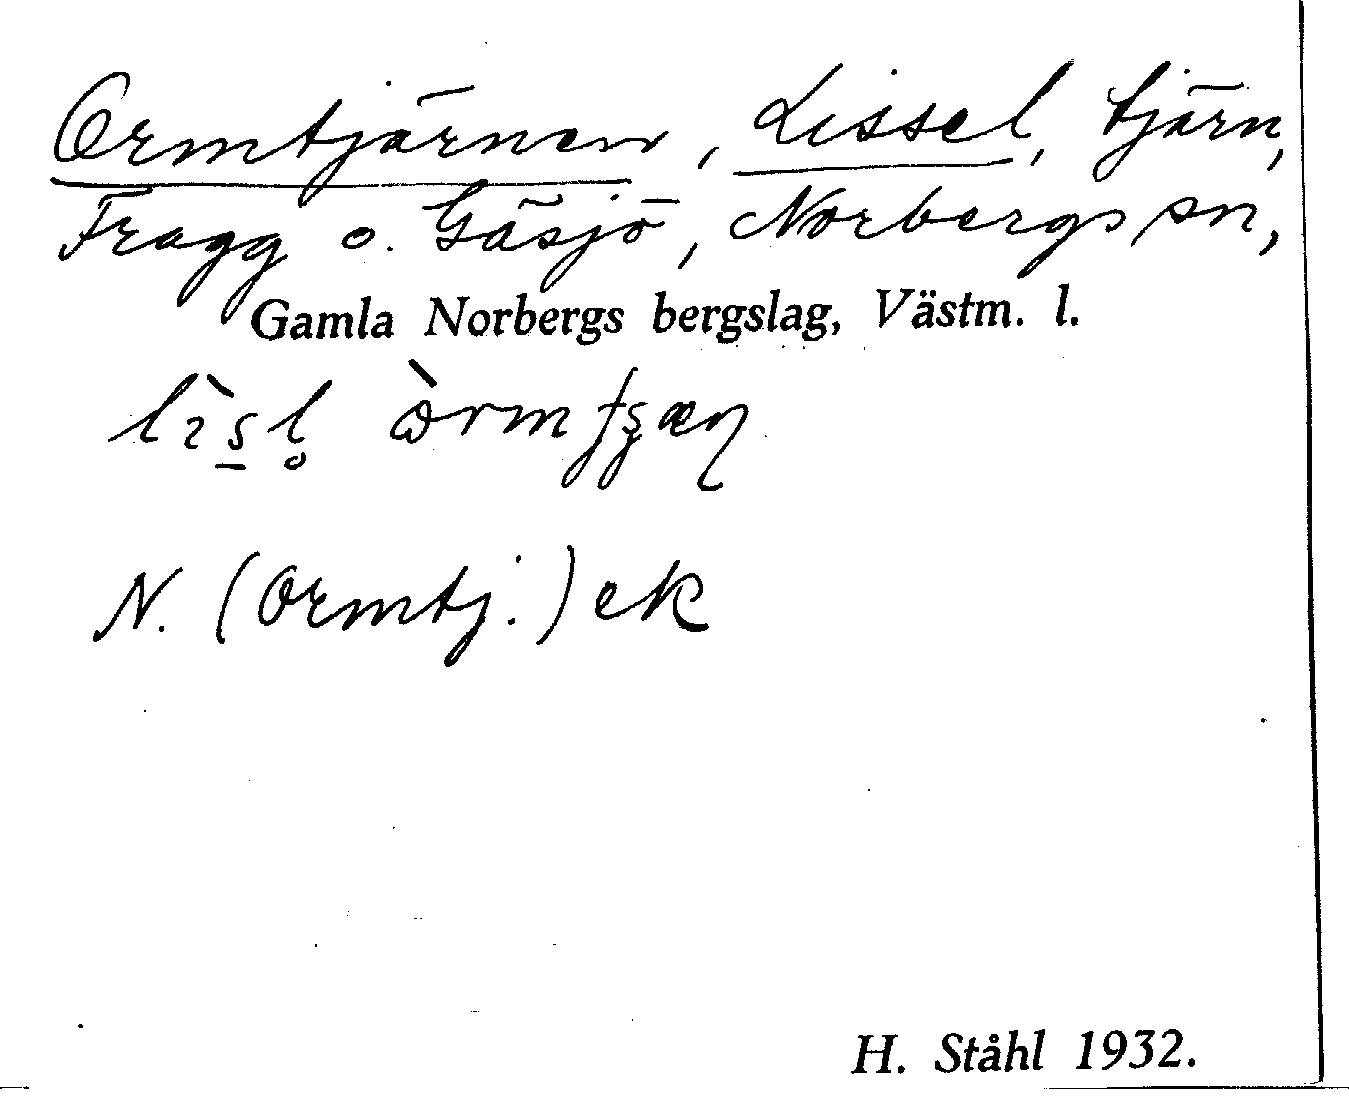 Ormtjärnen, Lissel, tjärn,
Fragg o. Gäsjö, Norbergs sn,
Gamla Norbergs bergslag, Västm. l.
N. (Ormtj.) ek
H. Ståhl 1932.